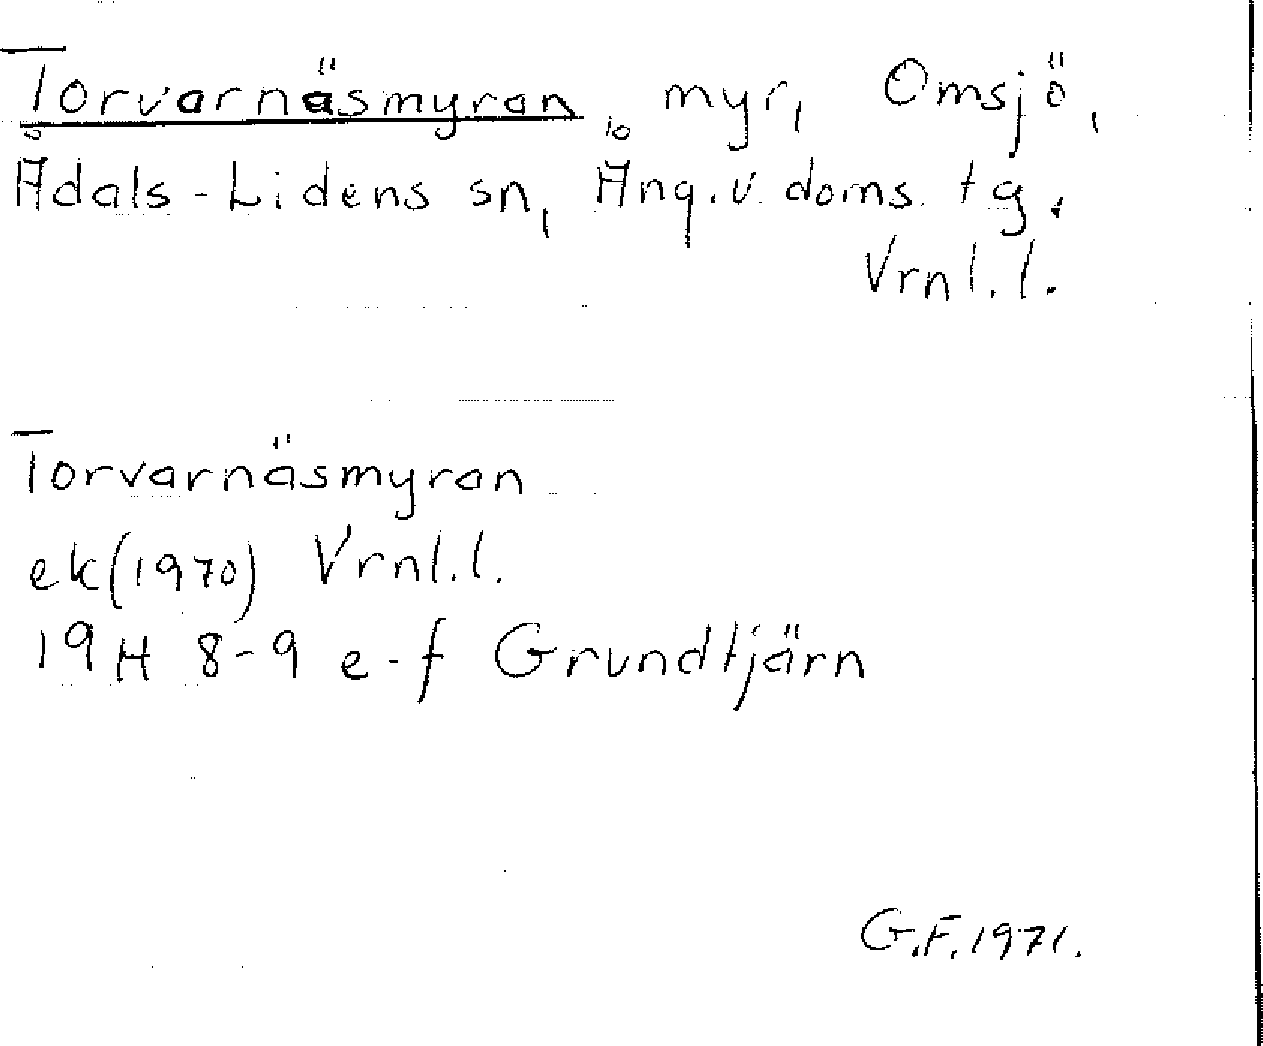 Torvarnäsmyran, myr, Omsjö,
Ådals-Lidens sn, Ång.v. doms. tg.
Vrnl.l.
Torvarnäsmyran
ek(1970) Vrnl.l.
19H 8-9 e-f Grundtjärn
G.F.1971.